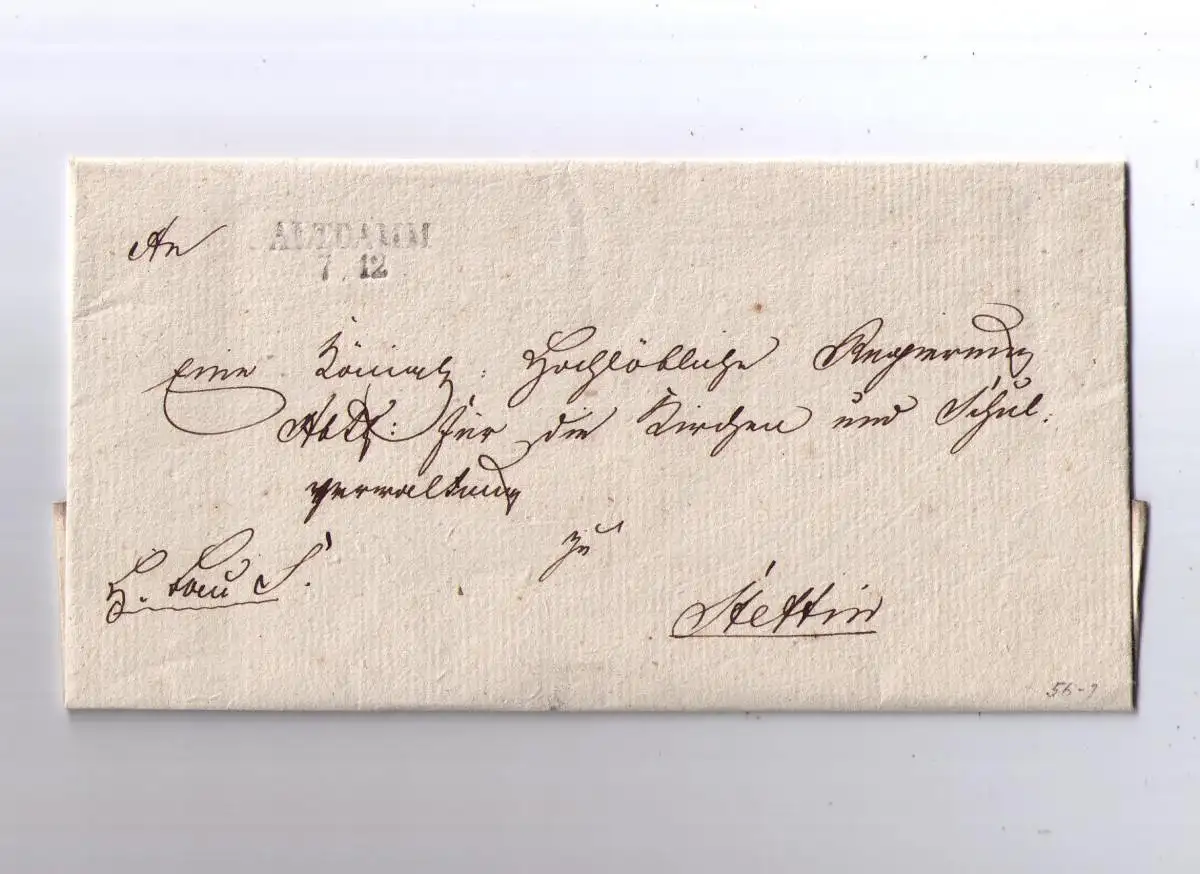 An
ALTDAMM
7. 12
Eine Königl: Hochlöbliche Regierung
Abth: für die Kirchen und Schul-
verwaltung
zu
H. S.
Stettin
56-